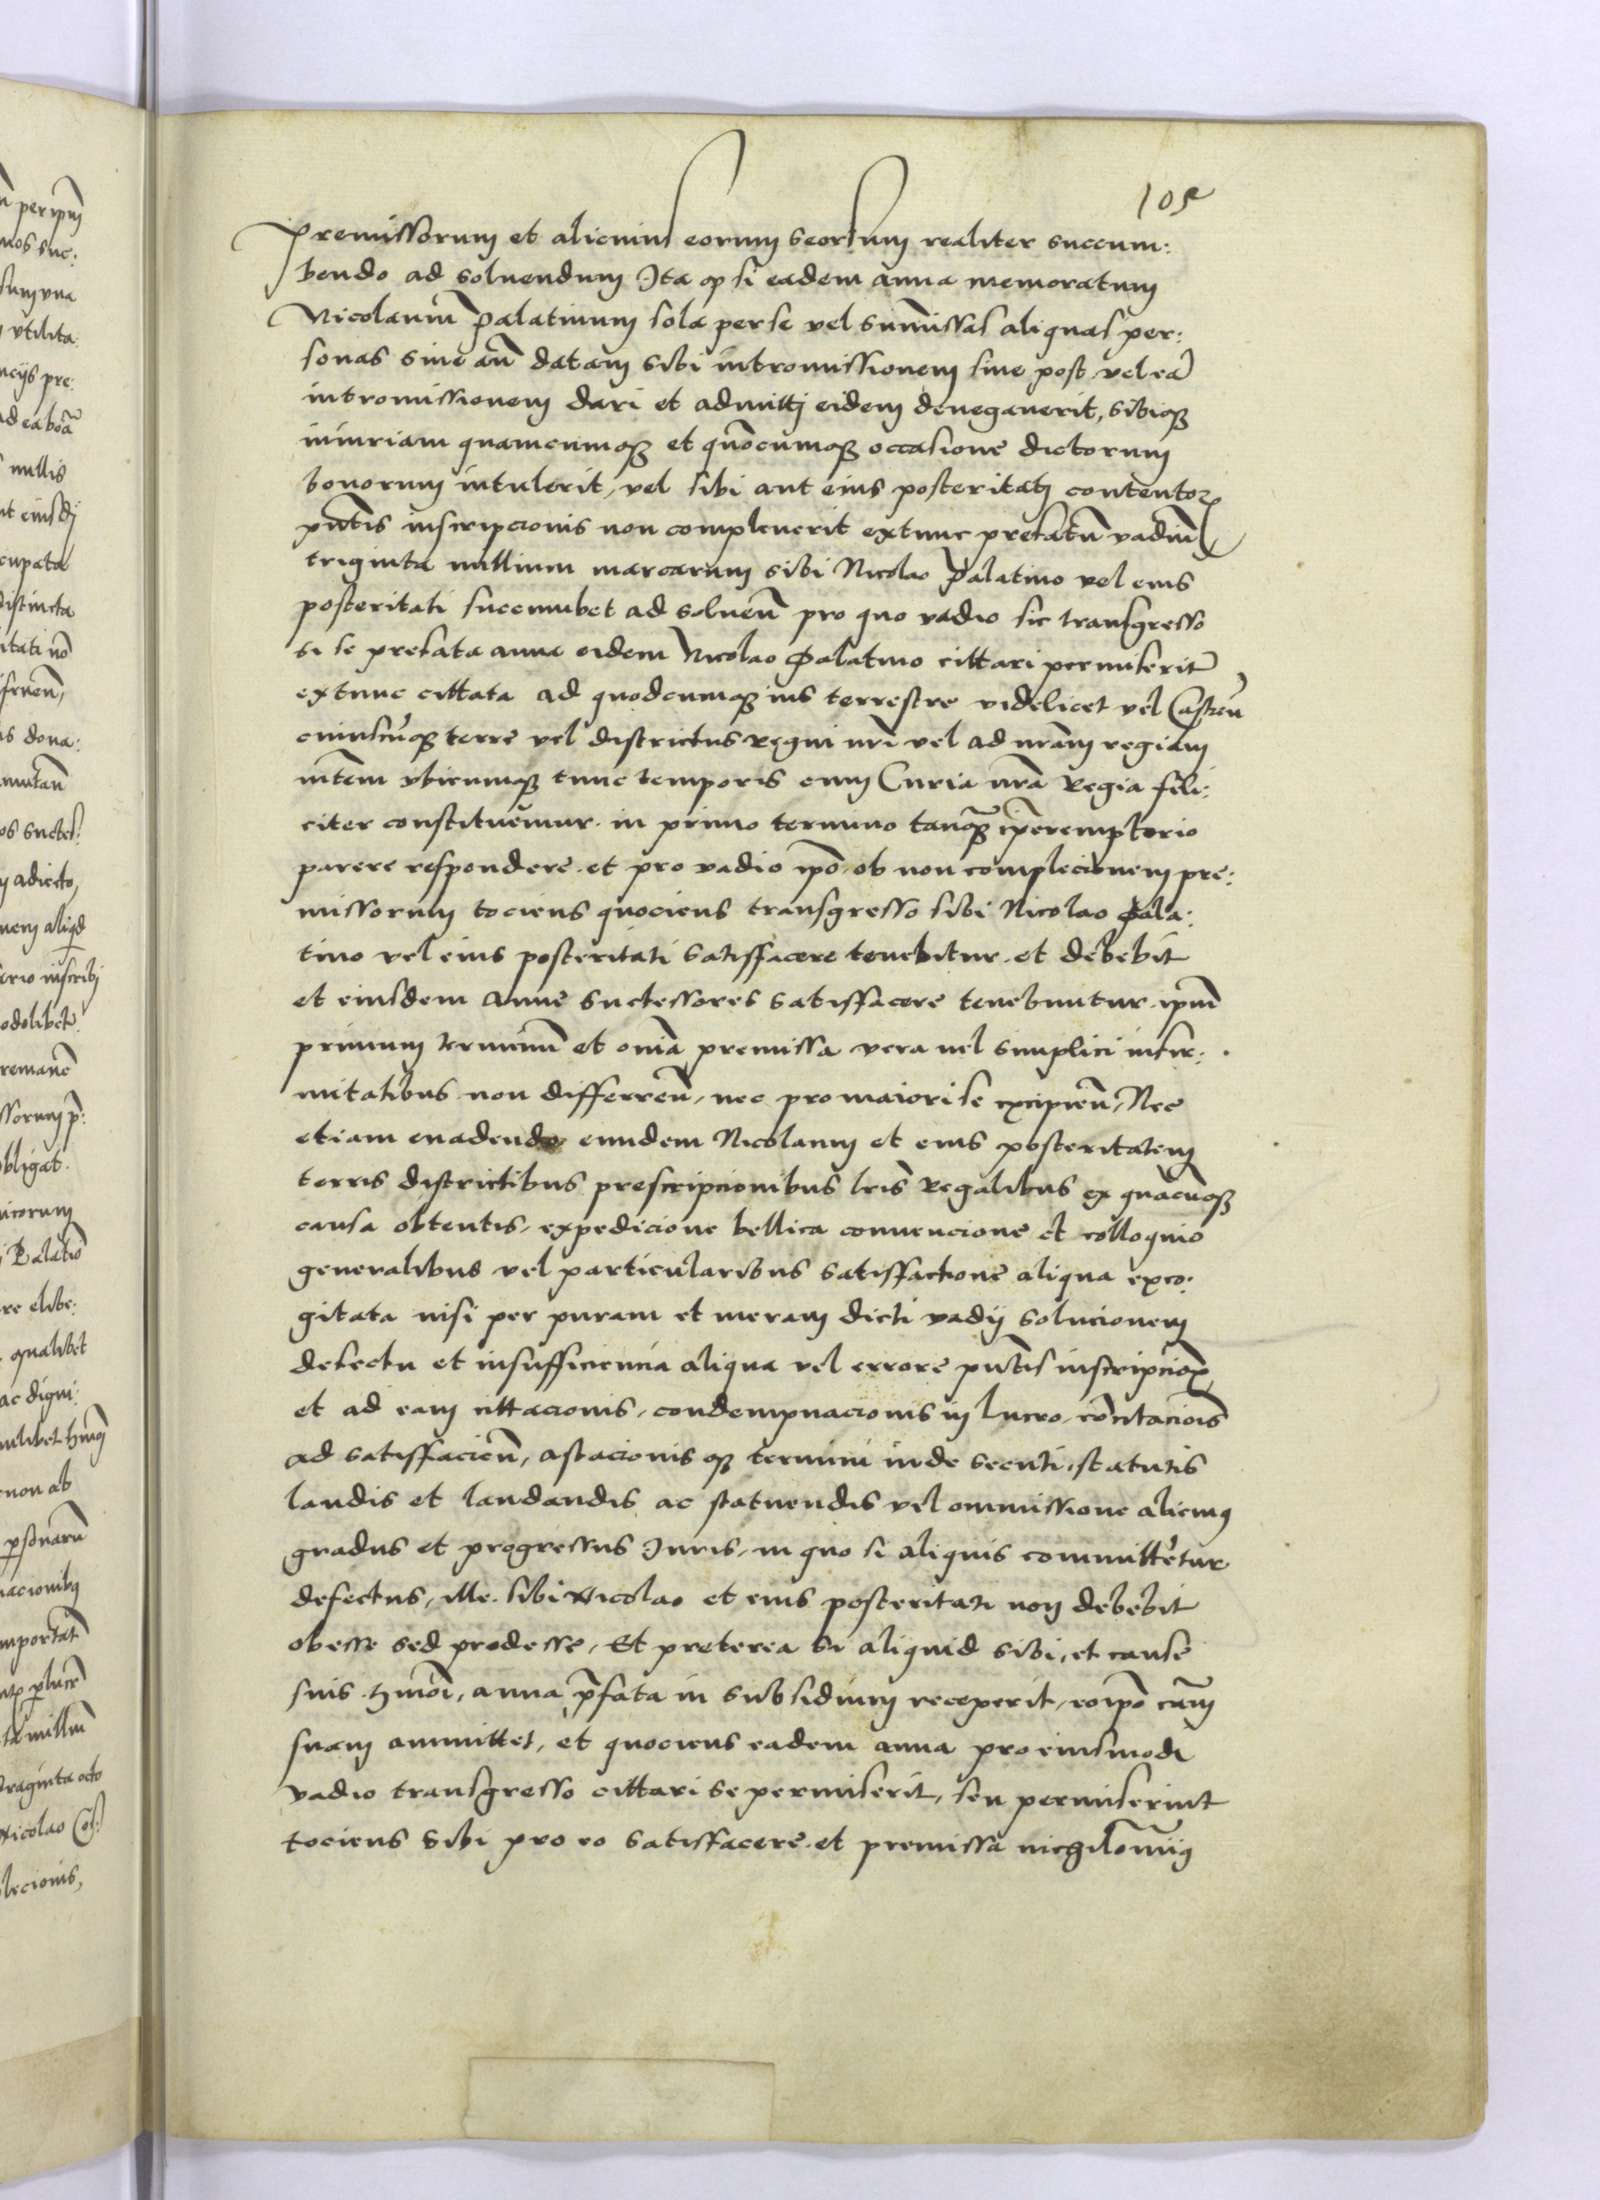 105
Premissorum et alicuius eorum seorsum realiter succum:
bendo ad soluendum Ita qꝫ si eadem anna memoratum
Nicolaum̄ Palatinum sola per se vel sum̄issas aliquas per:
sonas siue an̄ datam sibi intromissionem siue post vel eā
intromissionem dari et admitti eidem denegauerit, sibiqꝫ
iniuriam quamcumqꝫ et quōcumqꝫ occasione dictorum
bonorum intulerit, vel sibi aut eius posteritati contentoꝝ
pn̄tis inscripcionis non compleuerit extunc prefatū vadiū
triginta millium marcarum sibi Nicolao Palatino vel eius
posteritati succumbet ad soluen̄ pro quo vadio sic transgresso
si se prefata anna eidem Nicolao Palatino cittari permiserit
extunc cittata ad quodcumqꝫ ius terrestre videlicet vel Castren̄
cuiuscūqꝫ terre vel districtus Regni nr̄i vel ad nr̄am regiam
m̄tem vbicumqꝫ tunc temporis cum Curia nr̄a Regia feli:
citer constituemur. in primo termino tanqꝫ peremptorio
parere respondere. et pro vadio ip̄o ob non complecionem pre:
missorum tociens quociens transgresso sibi Nicolao Pala:
tino vel eius posteritati satisfacere tenebitur. et debebit
et eiusdem Anne successores satisfacere tenebuntur. ip̄m
primum terminū et om̄ia premissa vera uel simplici infir:
mitatibus non differren̄, nec pro maiori se excipien̄, Nec
etiam euadendo eundem Nicolaum et eius posteritatem
terris districtibus prescripcionibus lr̄is Regalibus ex quacūqꝫ
causa obtentis, expedicione bellica conuencione et colloquio
generalibus vel particularibus satisfactione aliqua exco:
gitata nisi per puram et meram dicti vadij solucionem
defectu et insufficiencia aliqua vel errore pn̄tis inscripcioꝝ
et ad eam cittacionis, condempnacionis in lucro, cōcitaciois
ad satisfacien̄, astacionis qꝫ termini inde secuti, statutis
laudis et laudandis ac statuendis vel ommissione alicuiꝰ
gradus et progressus Iuris, in quo si aliquis committeretur
defectus, ille. sibi Nicolao et eius posteritati non debebit
obesse sed prodesse, Et preterea si aliquid sibi, et cause
suis hm̄oi, anna p̄fata in subsidium receperit, eoip̄o cām
suam ammittet, et quociens eadem anna pro eiusmodi
vadio transgresso cittari se permiserit, seu permiserint
tociens sibi pro eo satisfacere. et premissa nichilomiꝰ